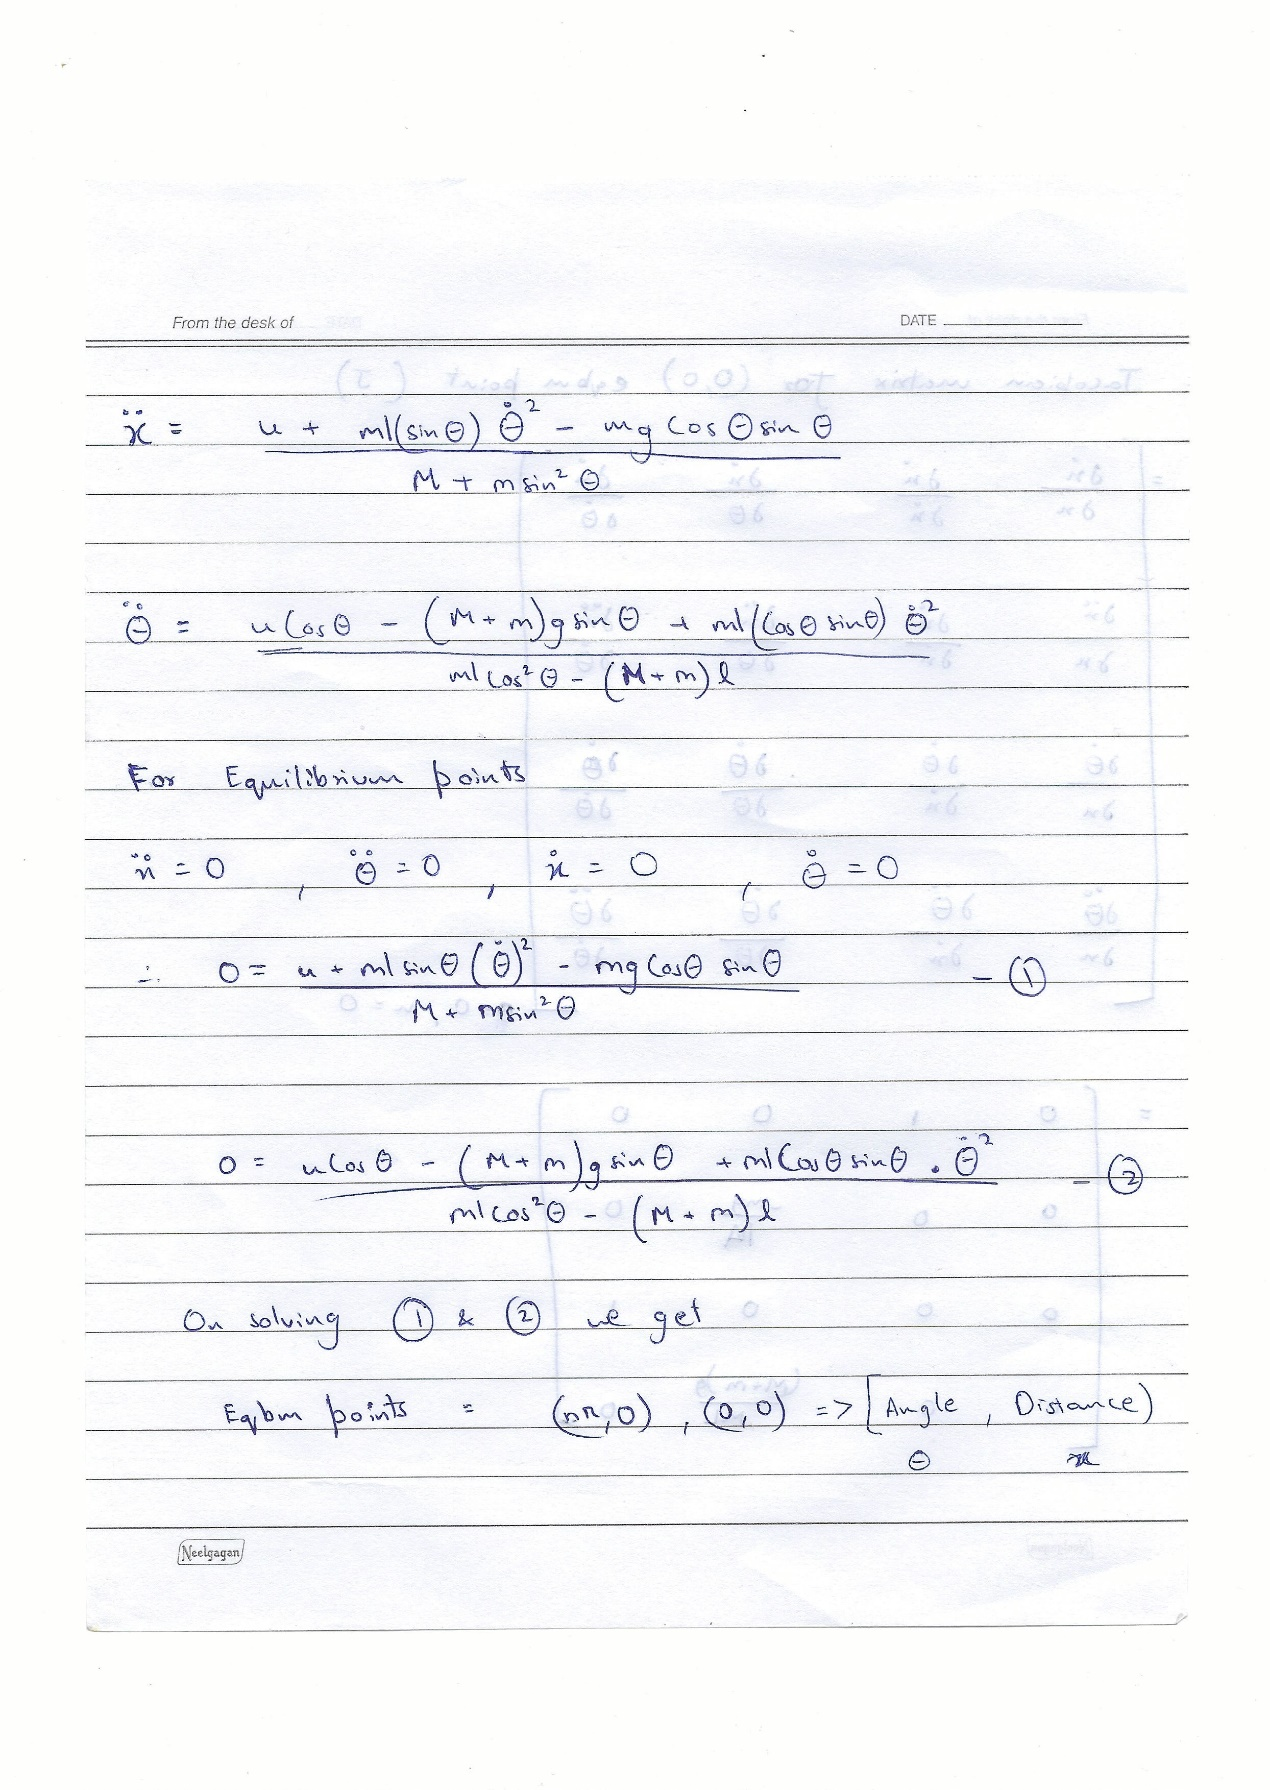 From the desk of DATE
ẍ = u + ml(sinθ) θ̇² - mg Cosθ sinθ
M + msin²θ
θ̈ = u Cosθ - (M+m)g sinθ + ml(Cosθ sinθ) θ̇²
mlcos²θ - (M+m)l
For Equilibrium points
ẍ = 0 , θ̈ = 0 , ẋ = 0 , θ̇ = 0
∴ 0 = u + ml sinθ (θ̇)² - mg Cosθ sinθ - ①
M + msin²θ
0 = u Cosθ - (M+m)g sinθ + ml Cosθ sinθ . θ̇² - ②
mlcos²θ - (M+m)l
On solving ① & ② we get
Eqbm points = (nπ,0) , (0,0) => [Angle , Distance)
θ x
Neelgagan